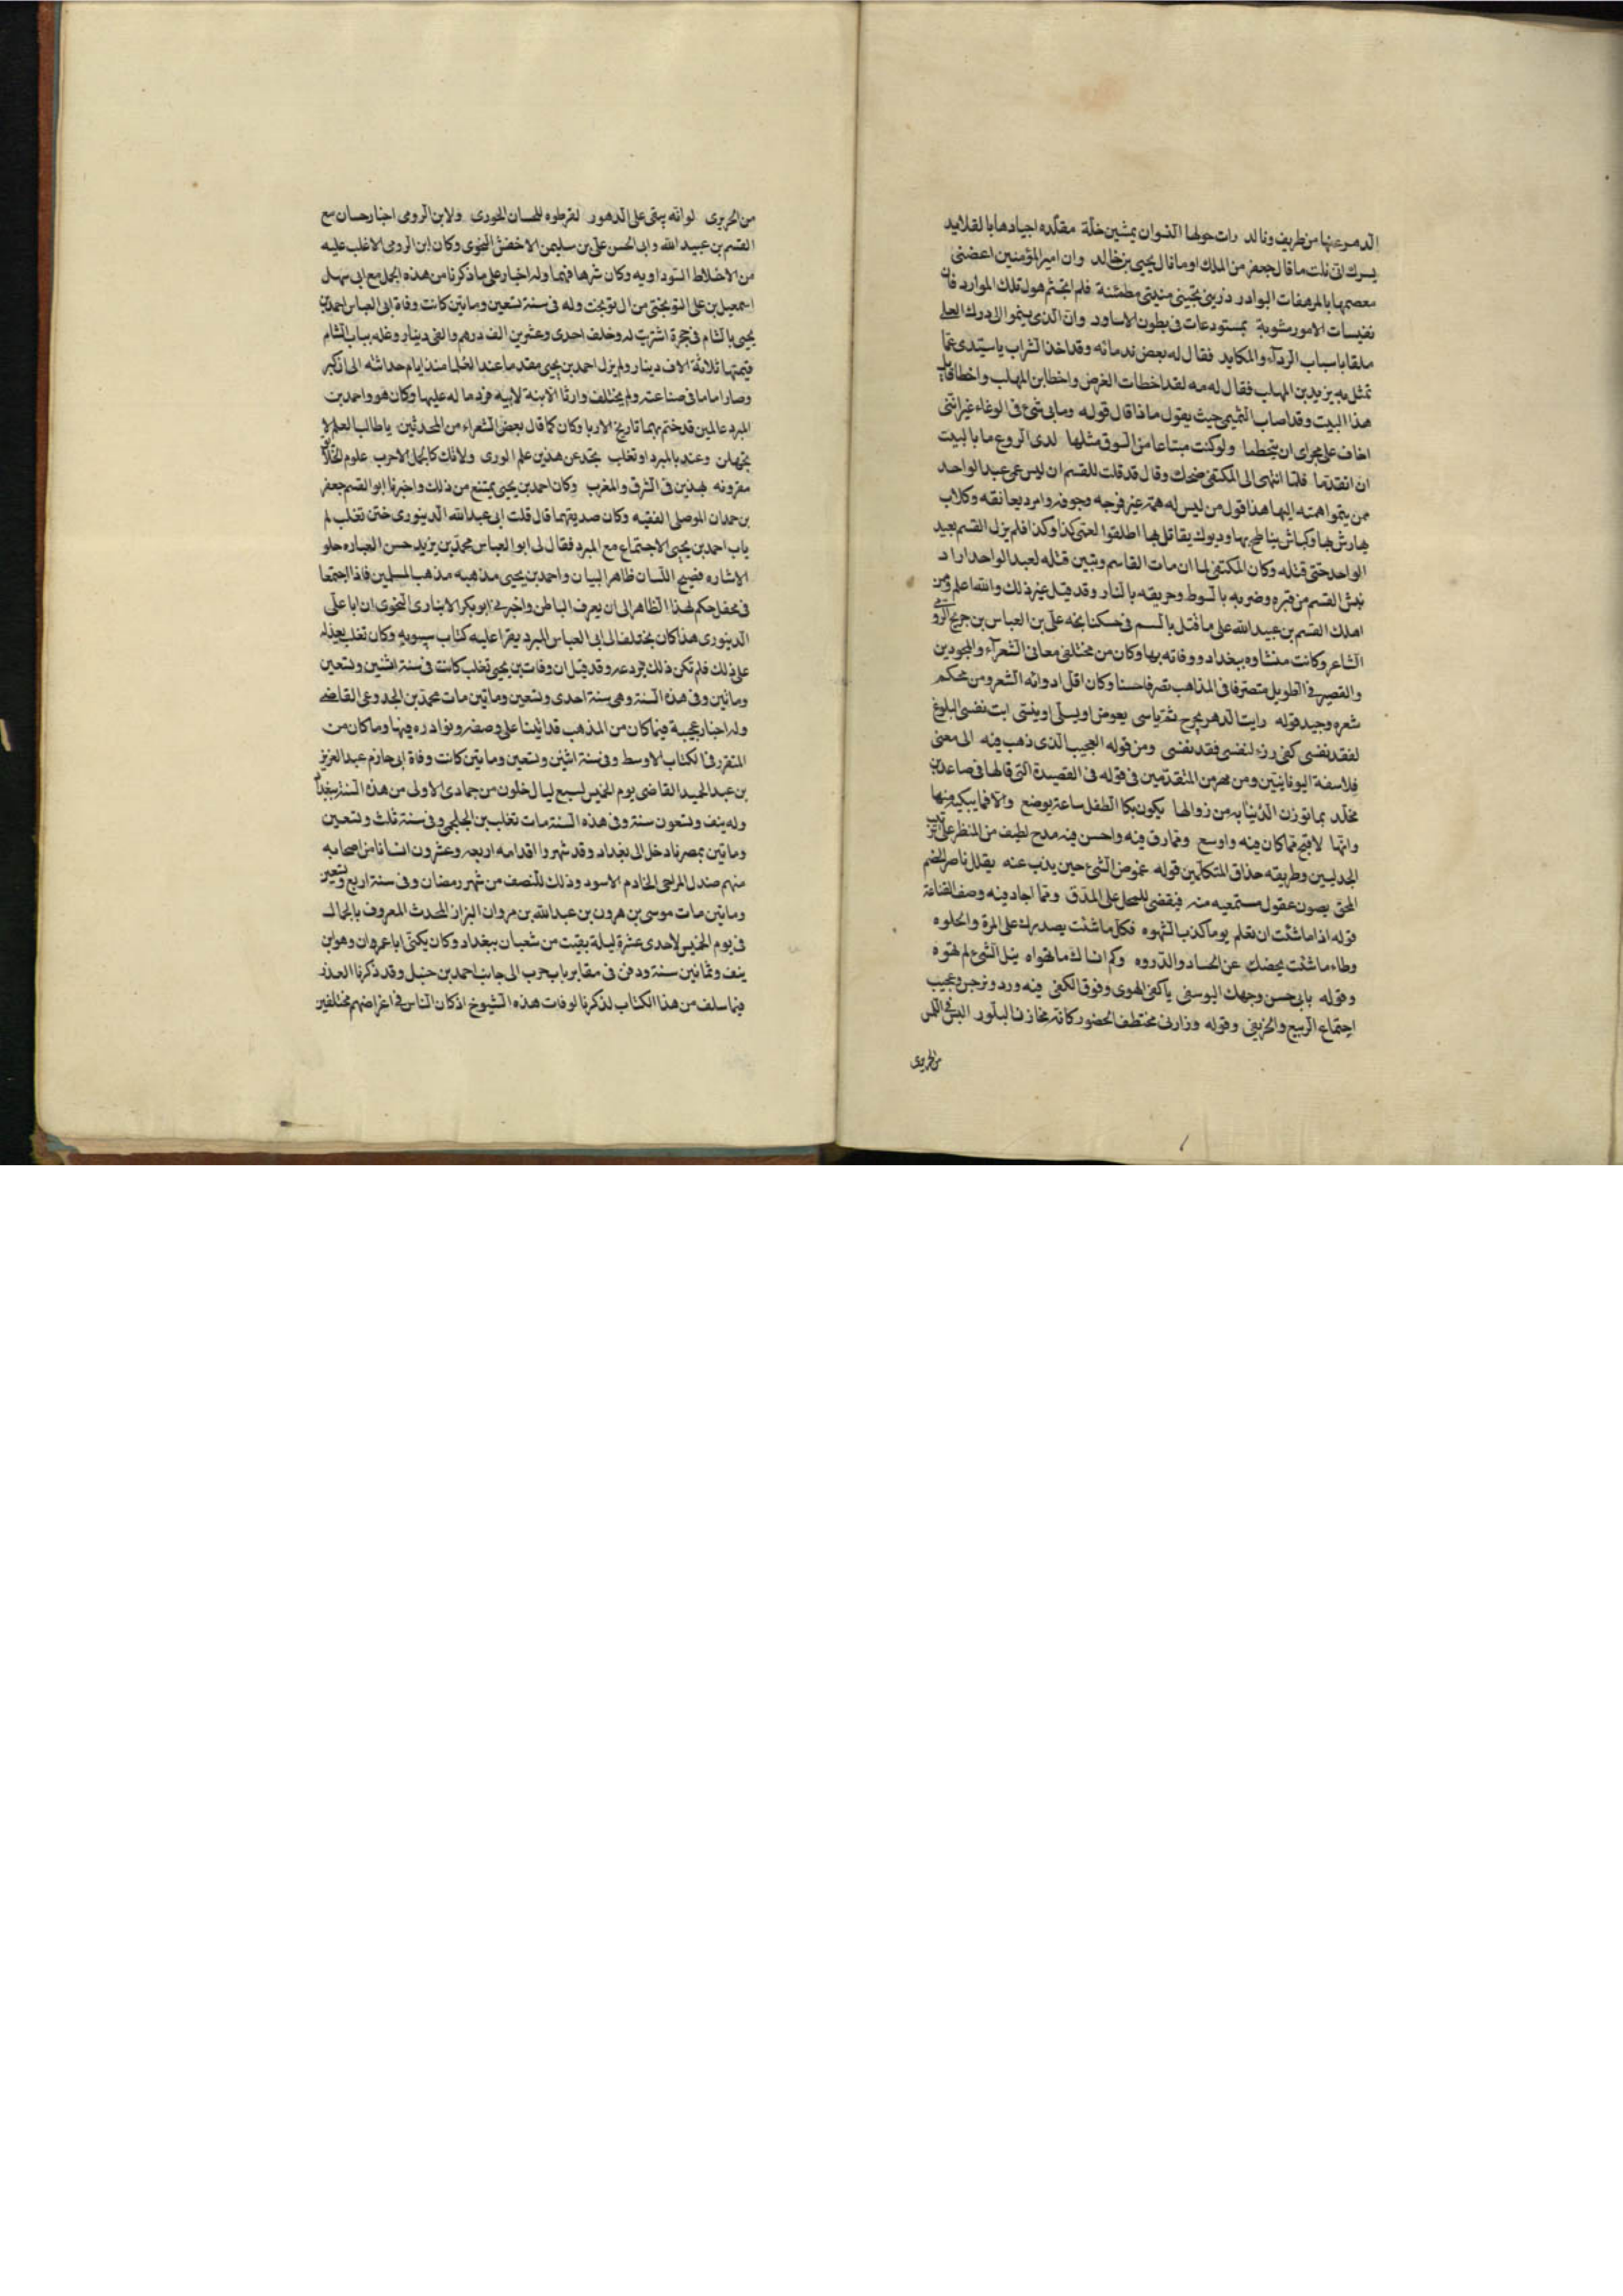 الدهر عنها من طريف وتالد رات حولها النسوان يمشين خلة مقلده اجيادها بالقلايد
يسرك انى نلت ما قال جعفر من الملك او ما نال يحيى بن خالد وان امير المؤمنين اعضنى
معصمها بالمرهفات البوادر ذرينى تجينى منيتى مطمئنة فلم اتجشم هول تلك الموارد فان
نفيسات الامور مشوبة بمستودعات فى بطون الاساود وان الذى يسموا الى درك العلى
ملقا باسباب الردآء والمكايد فقال له بعض ندمائه وقد اخذ الشراب يا سيدى عما
تمثل به يزيد بن المهلب فقال له مه لقد اخطات الغرض واخطا بن المهلب واخطا قايل
هذا البيت وقد اصاب التميمى حيث يقول ماذا قال قوله وما بى شئ فى الوغاء غير اننى
اخاف على مجراى ان يتحطما ولو كنت مبتاعا من السوق مثلها لدى الروع ما باليت
ان اتقدما فلما انتهى الى المكتفى ضحك وقال قد قلت للقسم ان ليس عمى عبد الواحد
ممن يسموا همته اليها هذا قول من ليس له همة غير فرجه وجوفه وامرد يعانقه وكلاب
يهارش بها وكباش يناطح بها وديوك يقاتل بها اطلقوا لعمى كذا وكذا فلم يزل القسم بعبد
الواحد حتى قتله وكان المكتفى لما ان مات القاسم وتبين قتله لعبد الواحد اراد
نبش القسم من قبره وضربه بالسوط وحريقه بالنار وقد قيل غير ذلك والله اعلم وممن
اهلك القسم بن عبيد الله على ما قتل بالسم فى خسكنابخه على بن العباس بن جريج الرومى
الشاعر وكانت منشاوه ببغداد ووفاته بها وكان من مختلفى معانى الشعرآء والمجودين
والقصير فى الطويل متصرفا فى المذاهب تصرفا حسنا وكان اقل ادواته الشعر ومن محكم
شعره وجيد قوله رايت الدهر يجرح ثم ياسى يعوض او يسلى او ينسى ابت نفسى البلوغ
لفقد نفسى كفى رزء لنفسى فقد نفسى ومن قوله العجيب الذى ذهب فيه الى معنى
فلاسفة اليونانيين ومن مهر من المتقدمين فى قوله فى القصيدة التى قالها فى صاعد بن
مخلد بما تؤذن الدنيا به من زوالها يكون بكا الطفل ساعة يوضع والا فما يبكيه منها
وانها لافيح مما كان فيه واوسع ومما رق فيه واحسن فيه مدح لطيف من المنظر على ترتيب
الجدليين وطريقه حذاق المتكلمين قوله غموض الشئ حين يذب عنه يقلل ناصر الخصم
المحق يصون عقول مستمعيه منه فيقضى للمحل على المدق ومما اجاد فيه وصف القناعة
قوله اذا ما شئت ان تعلم يوما كذب الشهوه فكل ما شئت يصدرك على المرة والحلوه
وطاء ما شئت يحضك عن الحسناء والذروه وكم انساك ما تهواه نيل الشئ لم تهوه
وقوله بابى حسن وجهك اليوسفى يا كفى الهوى وفوق الكفى فيه ورد ونرجس وعجيب
اجتماع الربيع والخريفى وقوله وزارنى مختطف الحضور كانه مخازن البلور البس فى اللمس
من الحريرى
من الحريرى لو انه يبقى على الدهور لقرطوه للحسان الحورى ولابن الرومى اخبار حسان مع
القسم بن عبيد الله وابى الحسن على بن سليمن الاخفش النحوى وكان ابن الرومى الاغلب عليه
من الاخلاط السوداويه وكان شرها فهما وله اخبار على ما ذكرنا من هذه الجمل مع ابى سهل
اسمعيل بن على النوبختى من ال نوبخت وله فى سنة تسعين ومايتين كانت وفاة ابى العباس احمد بن
يحيى بالشام فى حجرة اشتريت له وخلف احدى وعشرين الف درهم والفى دينار وغله بباب الشام
قيمتها ثلاثة الاف دينار ولم يزل احمد بن يحيى مقدما عند العلما منذ ايام حداثته الى ان كبر
وصار اماما فى صناعته ولم يختلف وارثا الا ابنة لابيه فرد ماله عليها وكان هو واحمد بن
المبرد عالمين قد ختم بهما تاريخ الادبا وكان كما قال بعض الشعراء من المحدثين يا طالب العلم لا
تجهلن وعذ بالمبرد او ثعلب تجد عن هذين علم الورى ولا تك كالجمل الاجرب علوم الخلائق
مقرونه بهذين فى الشرق والمغرب وكان احمد بن يحيى يمتنع من ذلك واخبرنا ابو القسم جعفر
بن حمدان الموصلى الفقيه وكان صديقهما قال قلت ابى عبد الله الدينورى ختن ثعلب لم
ياب احمد بن يحيى الاجتماع مع المبرد فقال لى ابو العباس محمد بن يزيد حسن العباره حلو
الاشاره فصيح اللسان ظاهر البيان واحمد بن يحيى مذهبه مذهب المسلمين فاذا اجتمعا
فى محفل حكم لهذا الظاهر الى ان يعرف الباطن واخبرنى ابو بكر الانبارى النحوى ان ابا على
الدينورى هذا كان يختلف الى ابى العباس المبرد يقرا عليه كتاب سيبويه وكان ثعلب يعذله
على ذلك فلم تكن ذلك يردعه وقد قيل ان وفات بن يحيى ثعلب كانت فى سنة اثنين وتسعين
ومايتين وفى هذه السنة وهى سنة احدى وتسعين ومايتين مات محمد بن الجذوعى القاضى
وله اخبار عجيبة فيما كان من المذهب قد اتينا على وصفه ونوادره فيها وما كان من
المتقزز فى الكتاب الاوسط وفى سنة اثنين وتسعين ومايتين كانت وفاة ابى حازم عبد العزيز
بن عبد الحميد القاضى يوم الخميس لسبع ليال خلون من جمادى الاولى من هذه السنة ببغداد
وله نيف وتسعون سنة وفى هذه السنة مات تغلب بن الخليجى وفى سنة ثلث وتسعين
ومايتين بمصرنا دخل الى بغداد وقد شهروا اقدامه اربعه وعشرون انسانا من اصحابه
منهم صندل المزاحمى الخادم الاسود وذلك للنصف من شهر رمضان وفى سنة اربع وتسعين
ومايتين مات موسى بن هرون بن عبد الله بن مروان البزاز المحدث المعروف بالجمال
فى يوم الخميس لاحدى عشرة ليلة بقيت من شعبان ببغداد وكان يكنى ابا عمران وهو ابن
نيف وثمانين سنة ودفن فى مقابر باب حرب الى جانب احمد بن حنبل وقد ذكرنا العذر
فيما سلف من هذا الكتاب لذكرنا لوفات هذه الشيوخ اذ كان الناس فى اغراضهم مختلفين